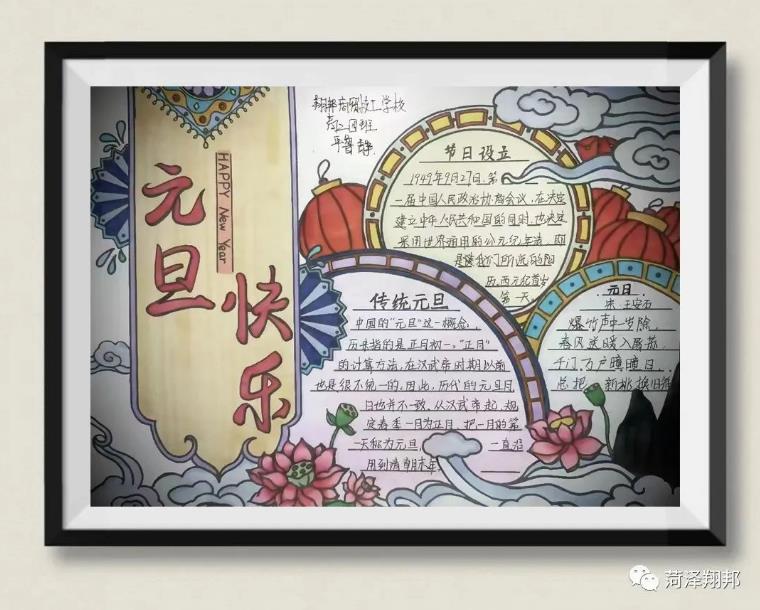 元旦
快乐
HAPPY New Year
翔邦商贸技工学校
节日设立
1949年9月27日,第
一届中国人民政治协商会议,在决定
建立中华人民共和国的同时,也决定
采用世界通用的公元纪年法,即
是我们所说的阳
历,西元纪首岁
第一天
传统元旦
中国的“元旦”这一概念,
历来指的是正月初一。“正月”
的计算方法,在汉武帝时期以前
也是很不统一的,因此,历代的元旦月
日也并不一致。从汉武帝起,规
定春季一月为正月,把一月的第
一天称为元旦, 一直沿
用到清朝末年
元日
宋 王安石
爆竹声中岁除,
春风送暖入屠苏
千门万户曈曈日
总把 新桃换旧
菏泽翔邦